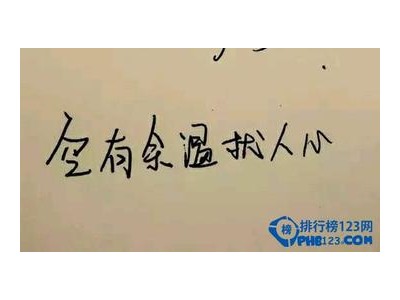 空有余温扰人心
排行榜123网
PHB123.COM